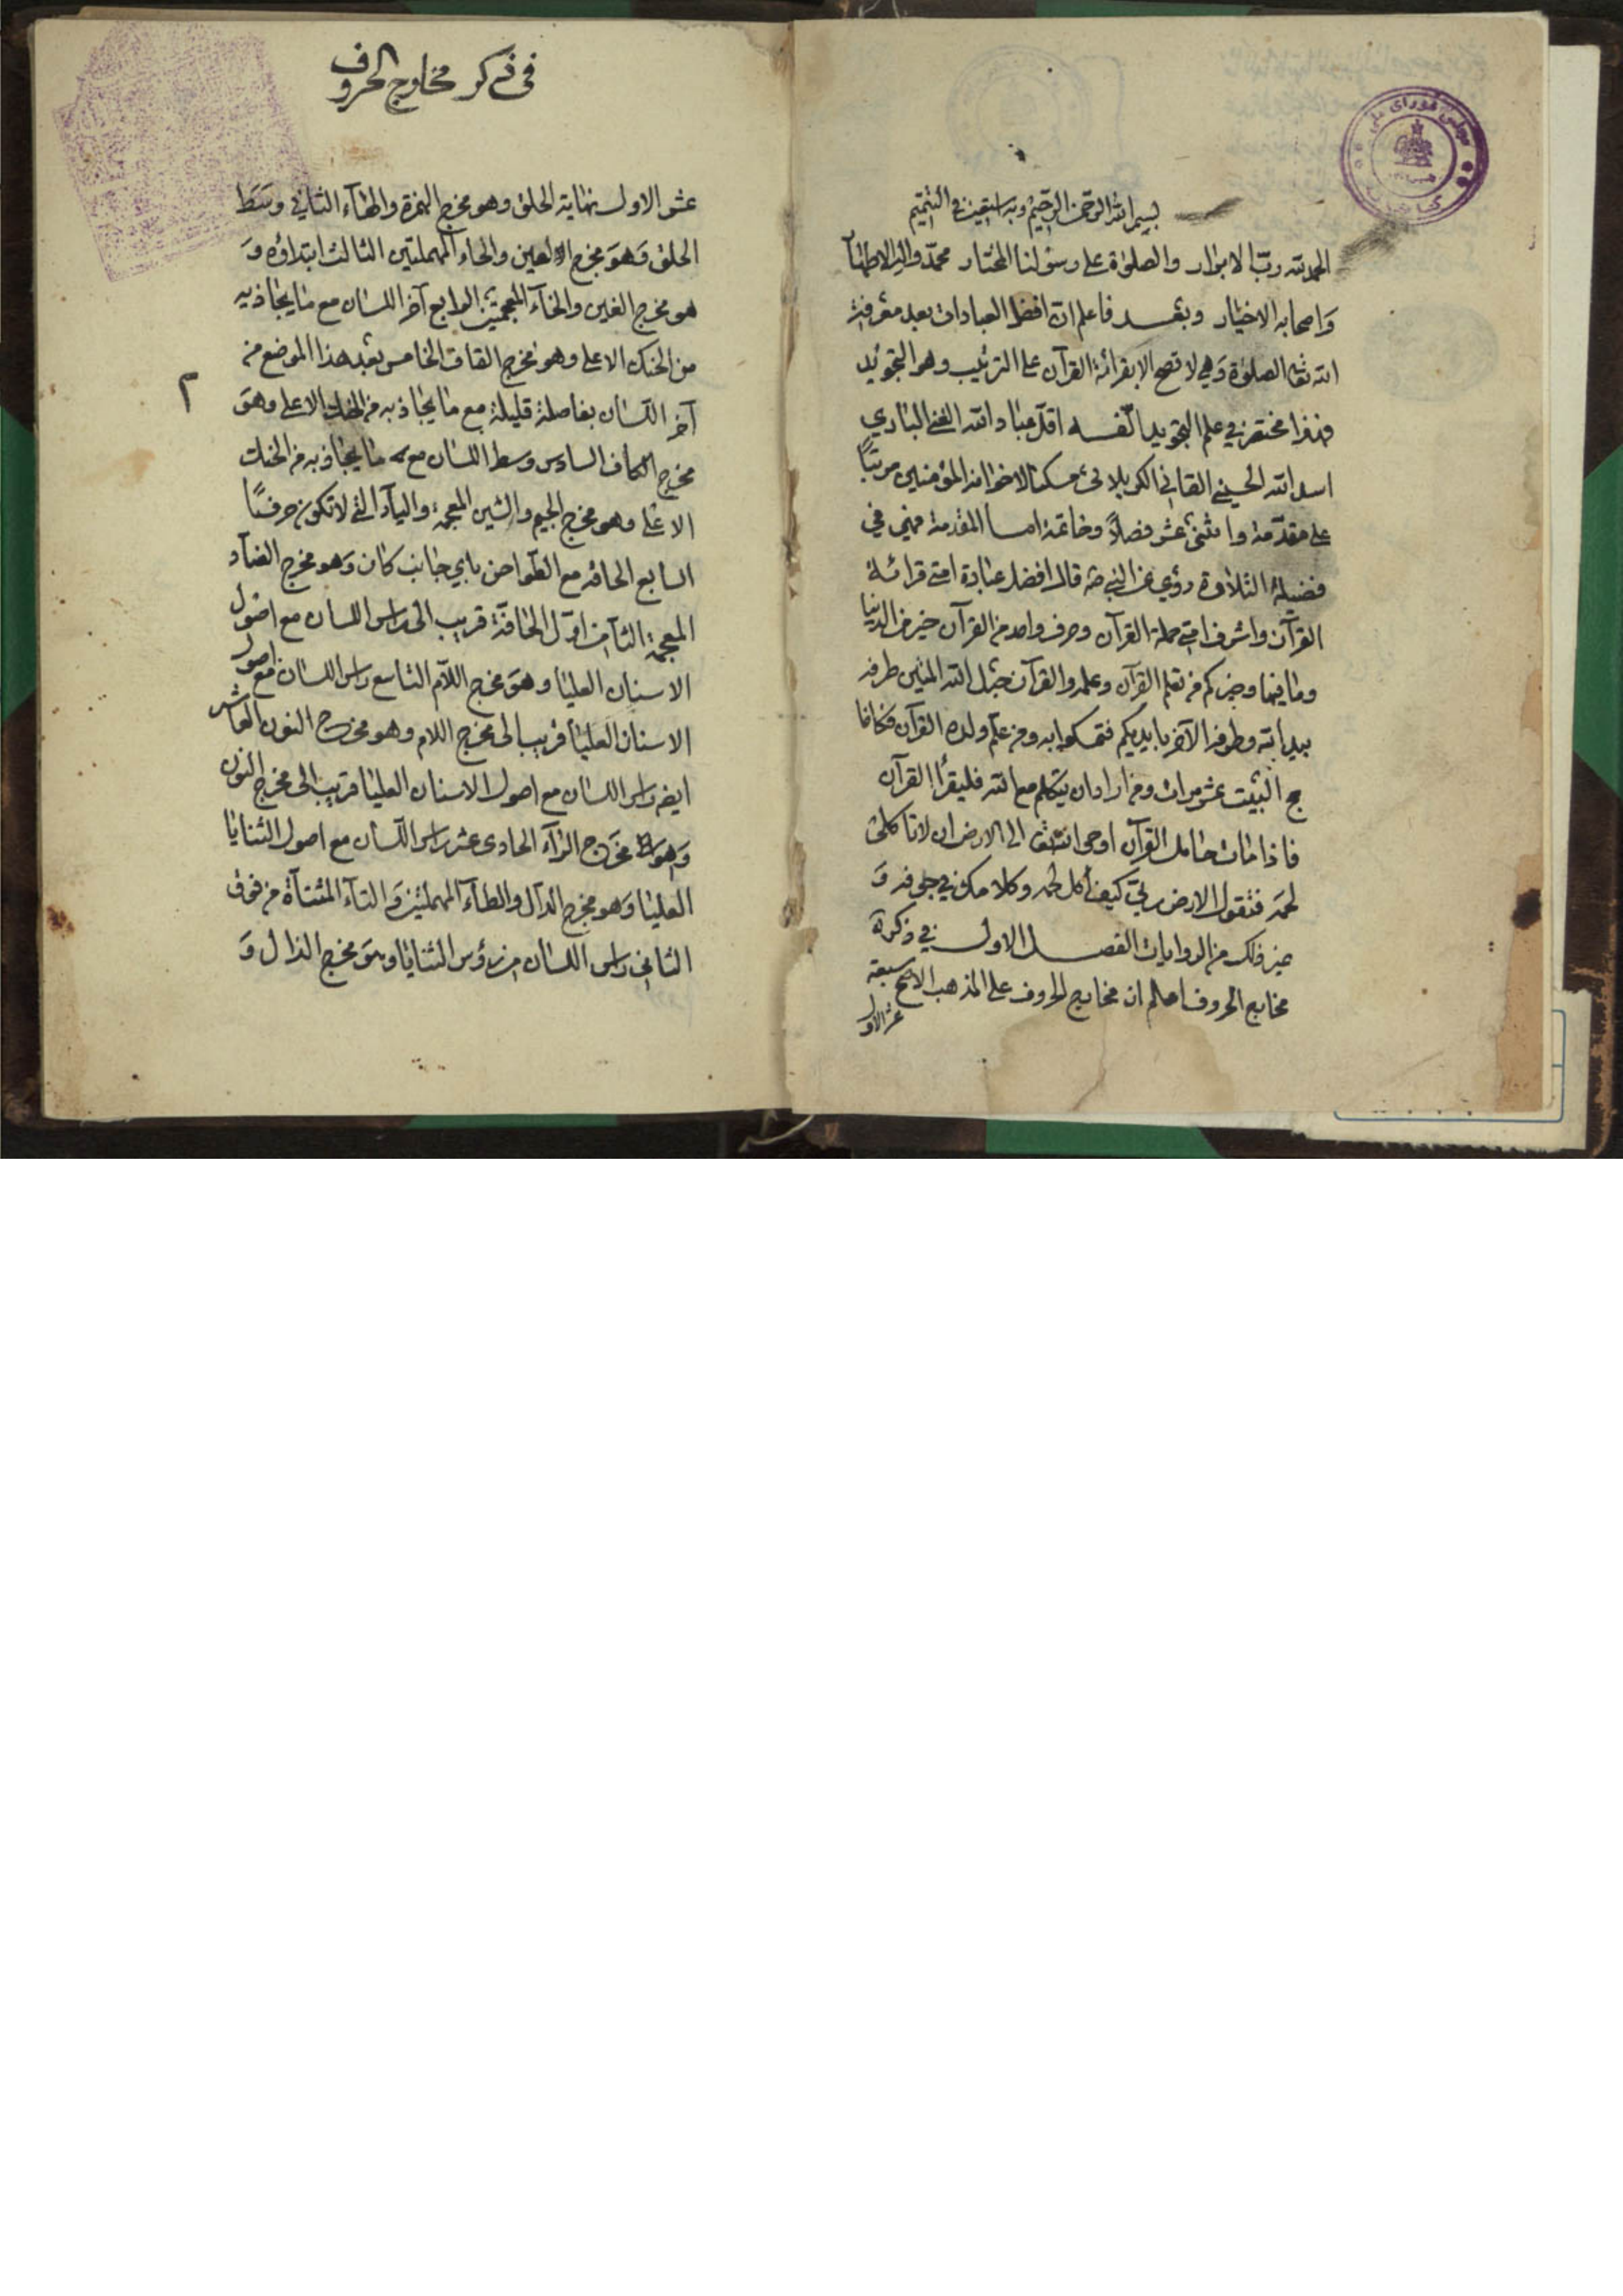 بسم الله الرحمن الرحيم وبه استعين في التتميم
الحمد لله رب الابرار والصلوة على رسولنا المختار محمد وآله الاطهار
واصحابه الاخيار وبعد فاعلم ان افضل العبادات بعد معرفة
الله تعالى الصلوة وهي لا تصح الا بقرائة القرآن على الترتيب وهو التجويد
فهذا مختصر في علم التجويد الفه اقل عباد الله الغني الباري
اسد الله الحسيني القايني الكربلائي مسكنا لاخوانه المؤمنين مرتبًا
على مقدمة واثنى عشر فصلاً وخاتمة اما المقدمة فهي في
فضيلة التلاوة روي عن النبي ص قال افضل عبادة امتي قرائة
القرآن واشرف امتي حملة القرآن وحرف واحد من القرآن خير من الدنيا
وما فيها وخيركم من تعلم القرآن وعلمه والقرآن حبل الله المتين طرفه
بيد الله وطرفه الآخر بايديكم فتمسكوا به ومن علم ولده القرآن فكانما
حج البيت عشر مرات ومن اراد ان يتكلم مع الله فليقرأ القرآن
فاذا مات حامل القرآن اوحى الله تعالى الى الارض ان لا تاكلي
لحمه فتقول الارض ربي كيف آكل لحمه وكلامك في جوفه و
غير ذلك من الروايات الفصل الاول في ذكر
مخارج الحروف اعلم ان مخارج الحروف على المذهب الاصح سبعة
عشر الاول
في ذكر مخارج الحروف
عشر الاول نهاية الحلق وهو مخرج الهمزة والهاء الثاني وسط
الحلق وهو مخرج العين والحاء المهملتين الثالث ابتداؤه و
هو مخرج الغين والخاء المعجمتين الرابع آخر اللسان مع ما يحاذيه
من الحنك الاعلى وهو مخرج القاف الخامس بعد هذا الموضع من
٢
آخر اللسان بفاصلة قليلة مع ما يحاذيه من الحنك الاعلى وهو
مخرج الكاف السادس وسط اللسان مع ما يحاذيه من الحنك
الاعلى وهو مخرج الجيم والشين المعجمة والياء التي لا تكون حرف
السابع الحافة مع الطواحن باي جانب كان وهو مخرج الضاد
المعجمة الثامن اول الحافة قريب الى راس اللسان مع اصول
الاسنان العليا وهو مخرج اللام التاسع راس اللسان مع اصول
الاسنان العليا قريب الى مخرج اللام وهو مخرج النون العاشر
ايضا راس اللسان مع اصول الاسنان العليا قريب الى مخرج النون
وهو مخرج الراء الحادى عشر راس اللسان مع اصول الثنايا
العليا وهو مخرج الدال والطاء المهملتين والتاء المثناة من فوق
الثاني راس اللسان من رؤس الثنايا وهو مخرج الذال و